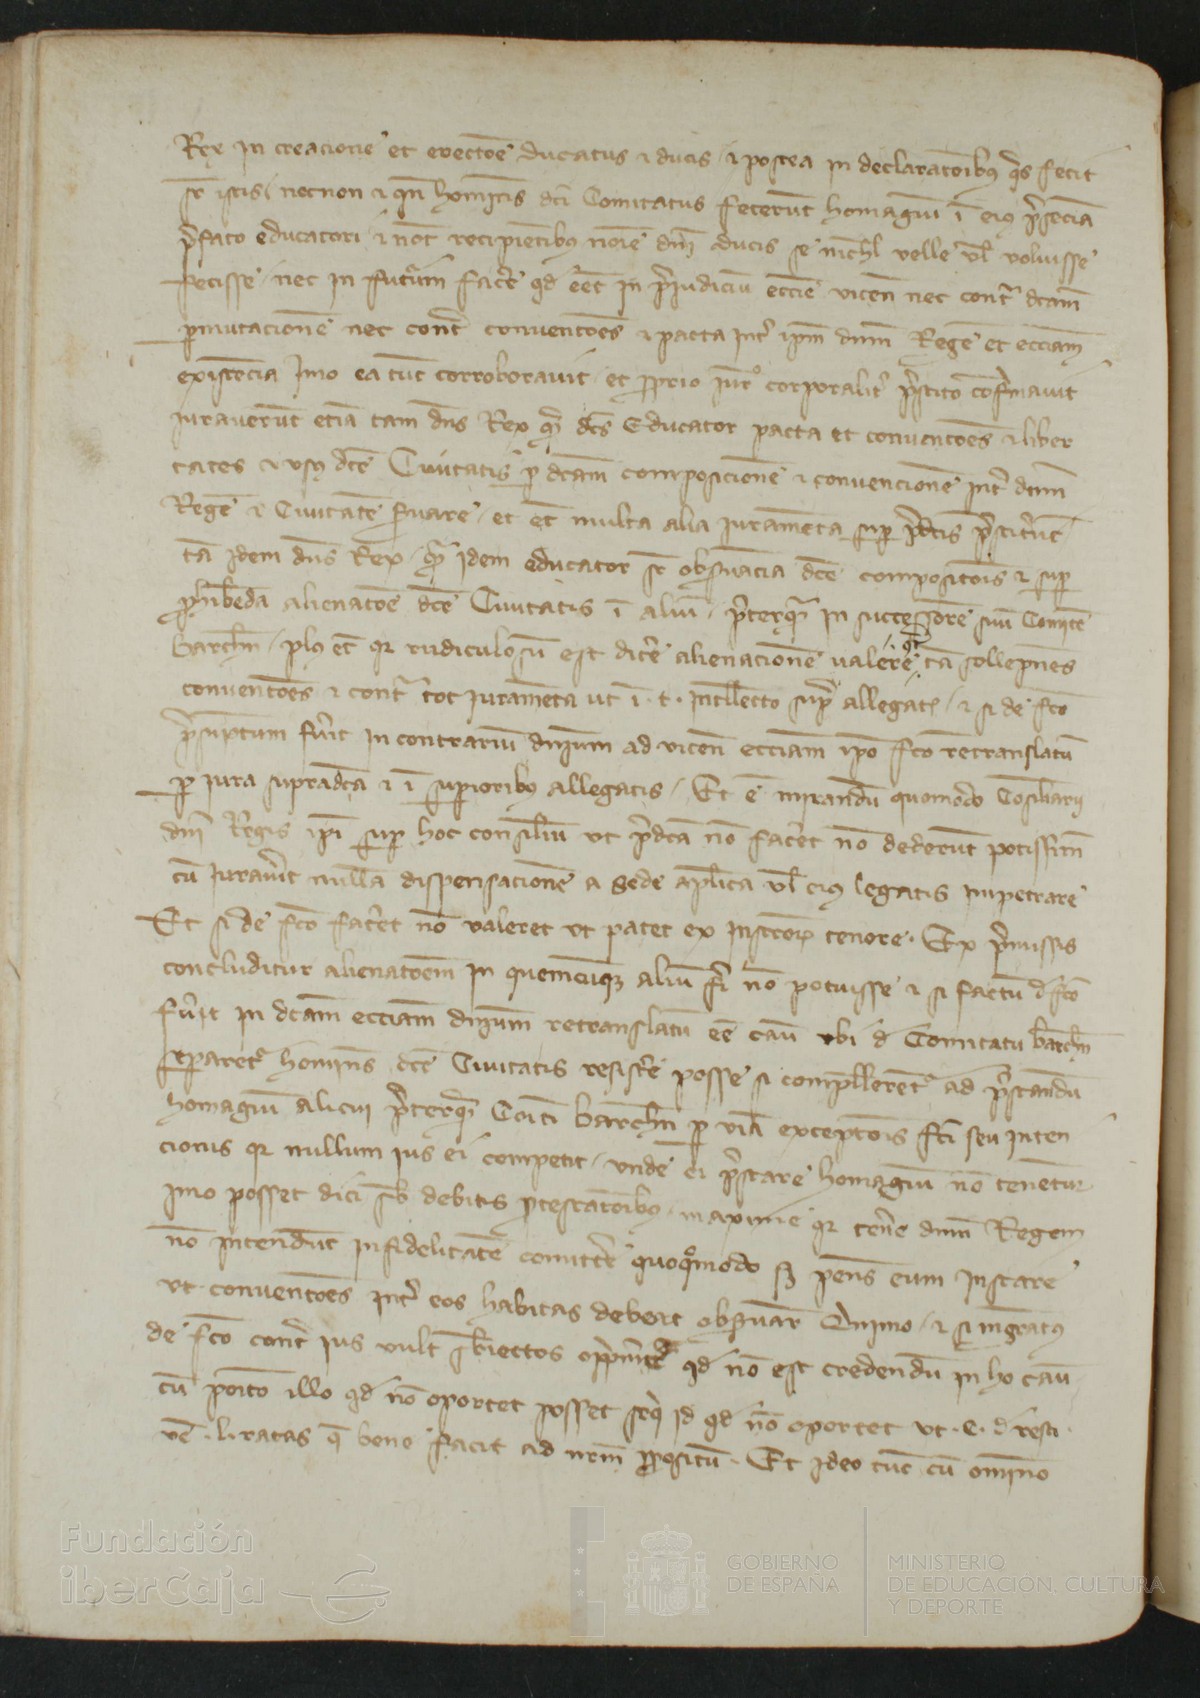 Rex in creacione et erectoe ducatus & ducis / & postea in declaratoibus qas fecit
sr istis / necnon & qn homines dci Comitatus fecerut homagiu i eius psecia
pfato educatori & not recipientibus noie dni ducis se nichl velle vl voluisse
fecisse / nec in futurum facere qd eet in preiudiciu eccie vicen nec contra dcam
pmutacione nec contra conuentoes & pacta inter ipm dnm Rege et ecciam
existecia Imo ea tuc corroborauit et proprio iuro corporaliter prestito cofirmauit
iurauerut etia tam dns Rex qm dcs Educator pacta et conuentoes & liber
tates & vsus dce Ciuitatis p dcam composicione & conuencione inter dnm
Rege & Ciuitate seruare / et et multa alia iurameta sup pdctis prestiterut
ta idem dns Rex / qm idem educator sr obseruacia dce compositois & sup
phibeda alienatoe dce Ciuitatis i aliu / preterqm in successore suu Comite
barchn / plus et qr ridiculosu est dicere alienacione valere ta sollepnes
conuentoes & contra tot iurameta ut i . t . intllecto supra allegatis / & si de fco
presuptum fuerit in contrariu dnium ad vicen ecciam ipo fco retranslatu
p iura supradca & i superioribus allegatis / Et e mirandu quomodo Cosiliarij
dni Regis ipi sup hoc consiliu vt predca no faceret no dederunt potissim
cu iurauerit nulla dispensacione a sede aplica vl eius legatis impetrare
Et si de fco faceret no valeret vt patet ex instrtor tenore . Ex premissis
concluditur alienatoem in quemcuqz aliu fieri no potuisse & si factu d fco
fuerit in dcam ecciam dnium retranslatu ee cau vbi d Comitatu barchn
separetur homines dce Ciuitatis resistere posse si compellerentur ad prestandu
homagiu alicui preterqm Coiti barchn p via exceptois fci seu inten
cionis qr nullum ius ei competit / vnde ei prestare homagiu no tenetur
imo posset dici sb debitis ptestatoibus / maxime qr tenere dnm Regem
no intendut infidelitate comittere quoquomodo sz penes eum instare
vt conuentoes inter eos habitas debeat obseruar Quimo / & si ingratus
de fco contra ius vult sbiectos opprimere qd no est credendu in ho cau
cu posito illo qd no oportet posset sequi id qd no oportet vt . C . d resti .
ve . l . ratas q bene facit ad nrm ppositu . Et ideo tuc cu omino
Fundación
iberCaja
GOBIERNO
DE ESPAÑA
MINISTERIO
DE EDUCACIÓN, CULTURA
Y DEPORTE